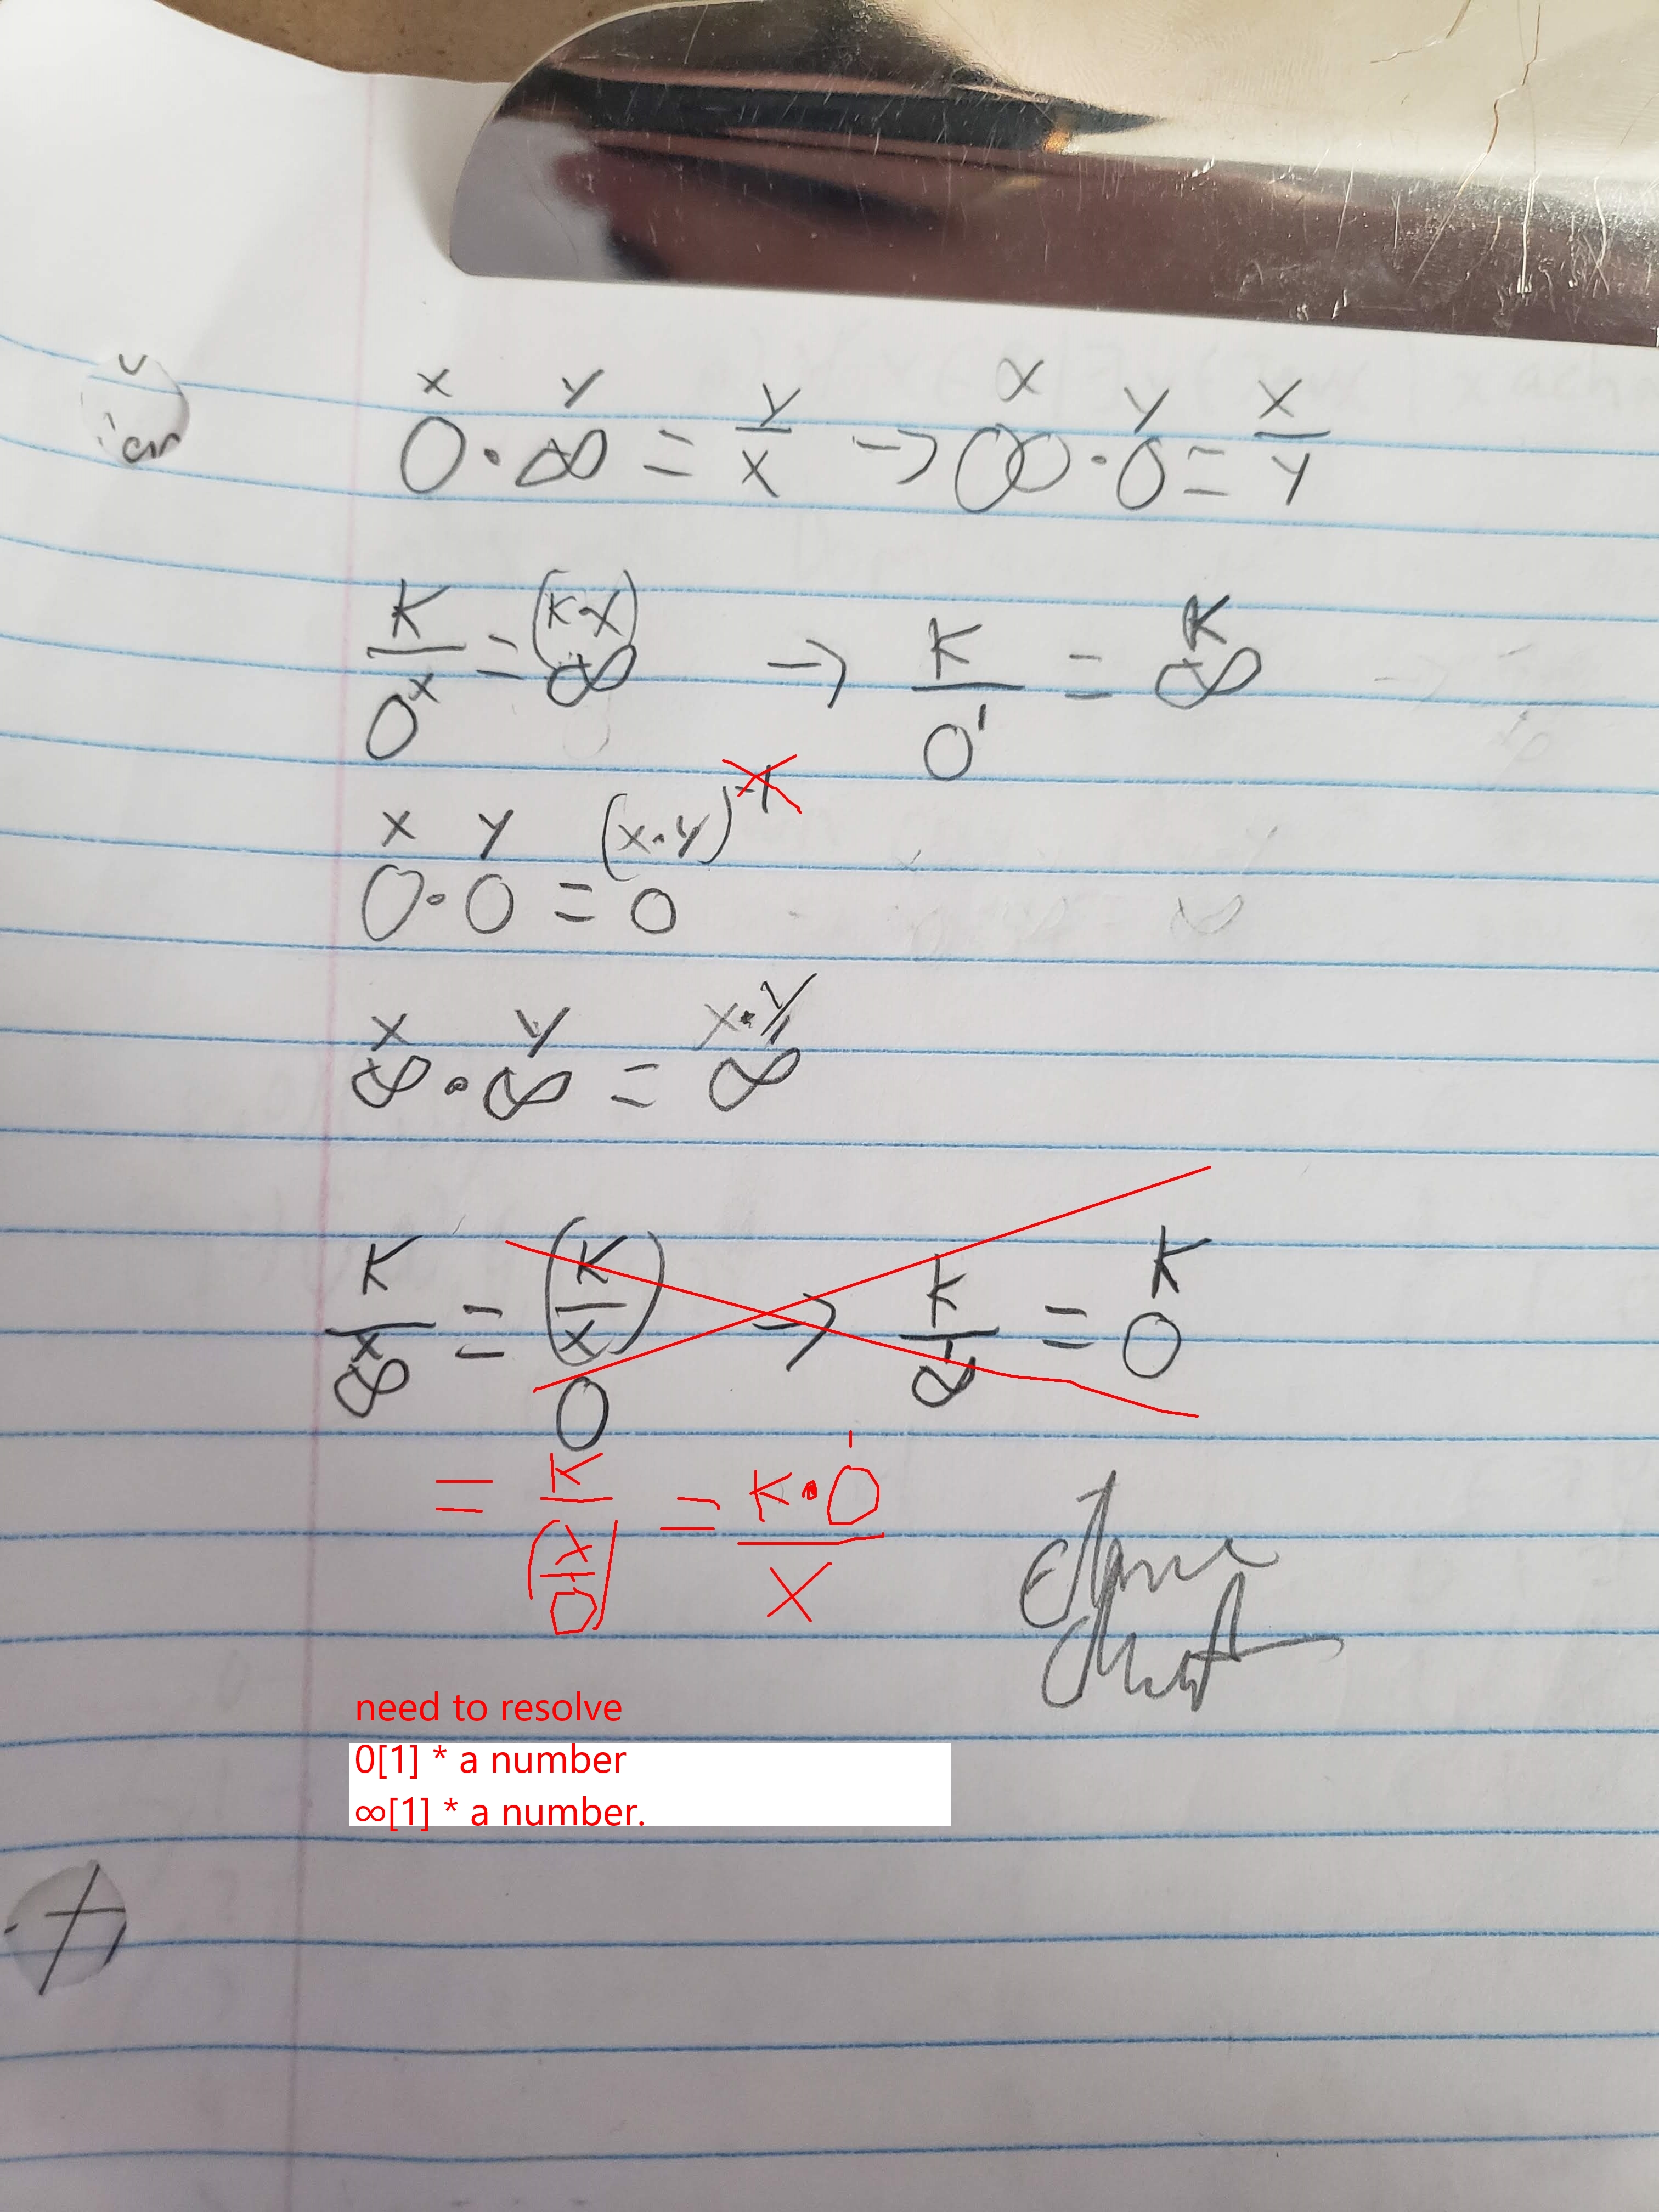 0^x · ∞^y = y/x → ∞^x · 0^y = x/y
K/0^x = ∞^(K·x) → K/0^1 = ∞^K
0^x · 0^y = 0^(x·y)^-1
∞^x · ∞^y = ∞^x·y
K/∞^x = 0^(K/x) → K/∞^1 = 0^K
= K/(x/0) = K·0^1/x
need to resolve
0[1] * a number
∞[1] * a number.